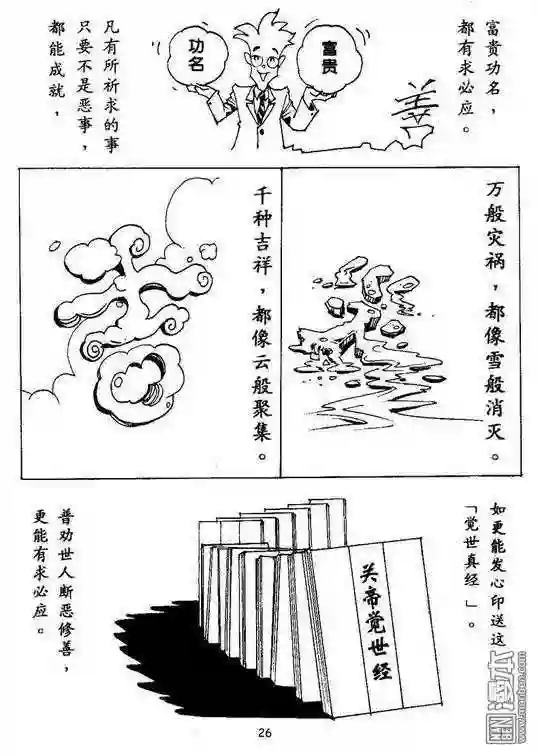 富贵功名，
都有求必应。
富贵
功名
善
凡有所祈求的事
只要不是恶事，
都能成就，
万般灾祸，都像雪般消灭。
千种吉祥，都像云般聚集。
吉
如更能发心印送这
「觉世真经」。
关帝觉世经
普劝世人断恶修善，
更能有求必应。
26
漫本